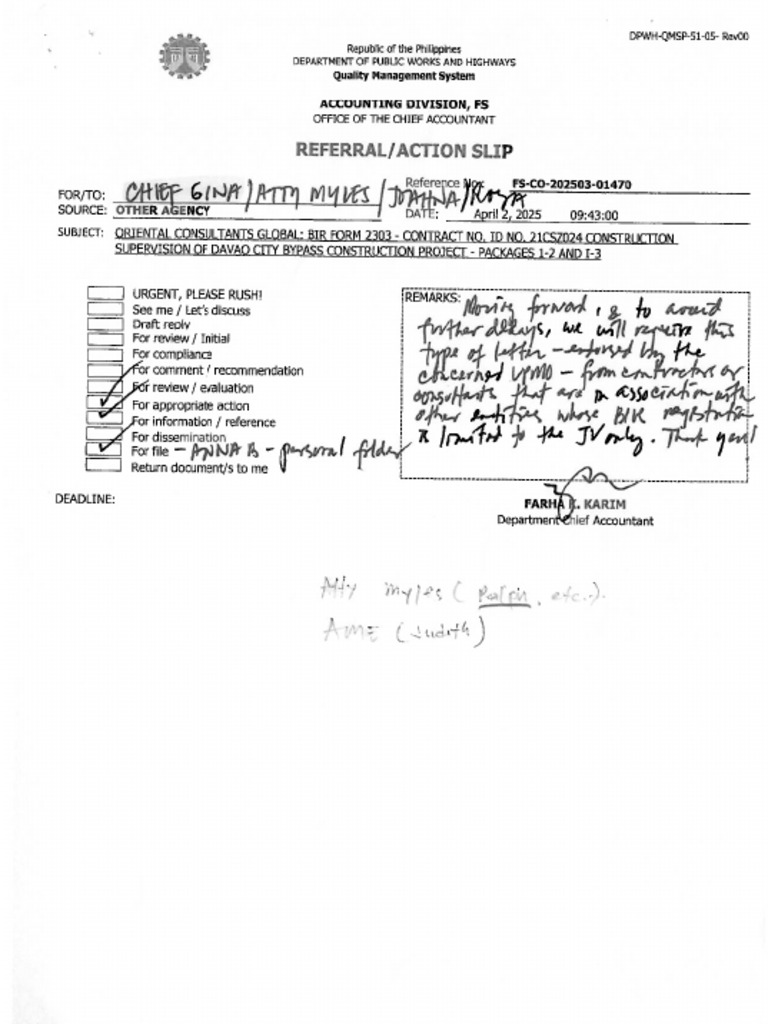 DPWH-QMSP-51-05- Rev00
Republic of the Philippines
DEPARTMENT OF PUBLIC WORKS AND HIGHWAYS
Quality Management System
ACCOUNTING DIVISION, FS
OFFICE OF THE CHIEF ACCOUNTANT
REFERRAL/ACTION SLIP
FOR/TO: CHIEF GINA/ATTY MYLES/JOAHNA/
Reference No: FS-CO-202503-01470
SOURCE: OTHER AGENCY
DATE: April 2, 2025 09:43:00
SUBJECT: ORIENTAL CONSULTANTS GLOBAL: BIR FORM 2303 - CONTRACT NO. ID NO. 21CSZ024 CONSTRUCTION
SUPERVISION OF DAVAO CITY BYPASS CONSTRUCTION PROJECT - PACKAGES 1-2 AND I-3
URGENT, PLEASE RUSH!
See me / Let's discuss
Draft reply
For review / Initial
For compliance
For comment / recommendation
For review / evaluation
For appropriate action
For information / reference
For dissemination
For file - ANNA B - personal folder
Return document/s to me
REMARKS: Moving forward, & to avoid
further delays, we will require this
type of letter - endorsed by the
concerned UPMO - from contractors or
consultants that are in association with
other entities whose BIR registration
is limited to the JV only. Thank you!
FARHA K. KARIM
Department Chief Accountant
DEADLINE:
Atty myles (Ralph, etc.).
AME (Judith)